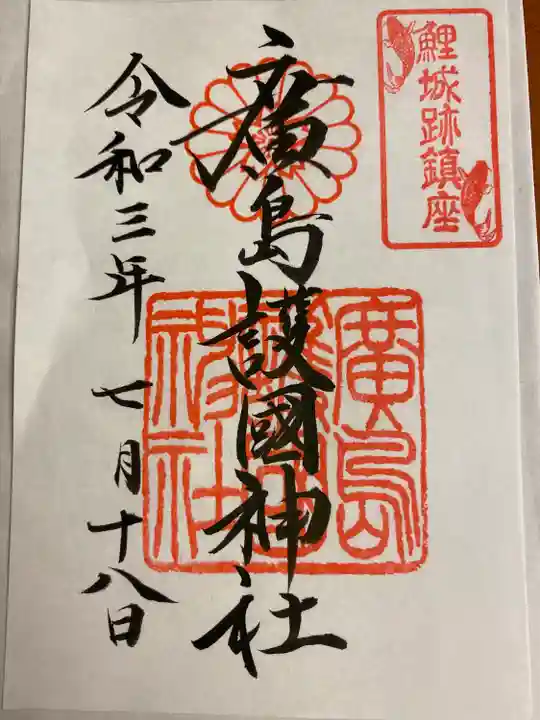 鯉城跡鎮座
廣島護國神社
令和三年 七月十八日
廣島